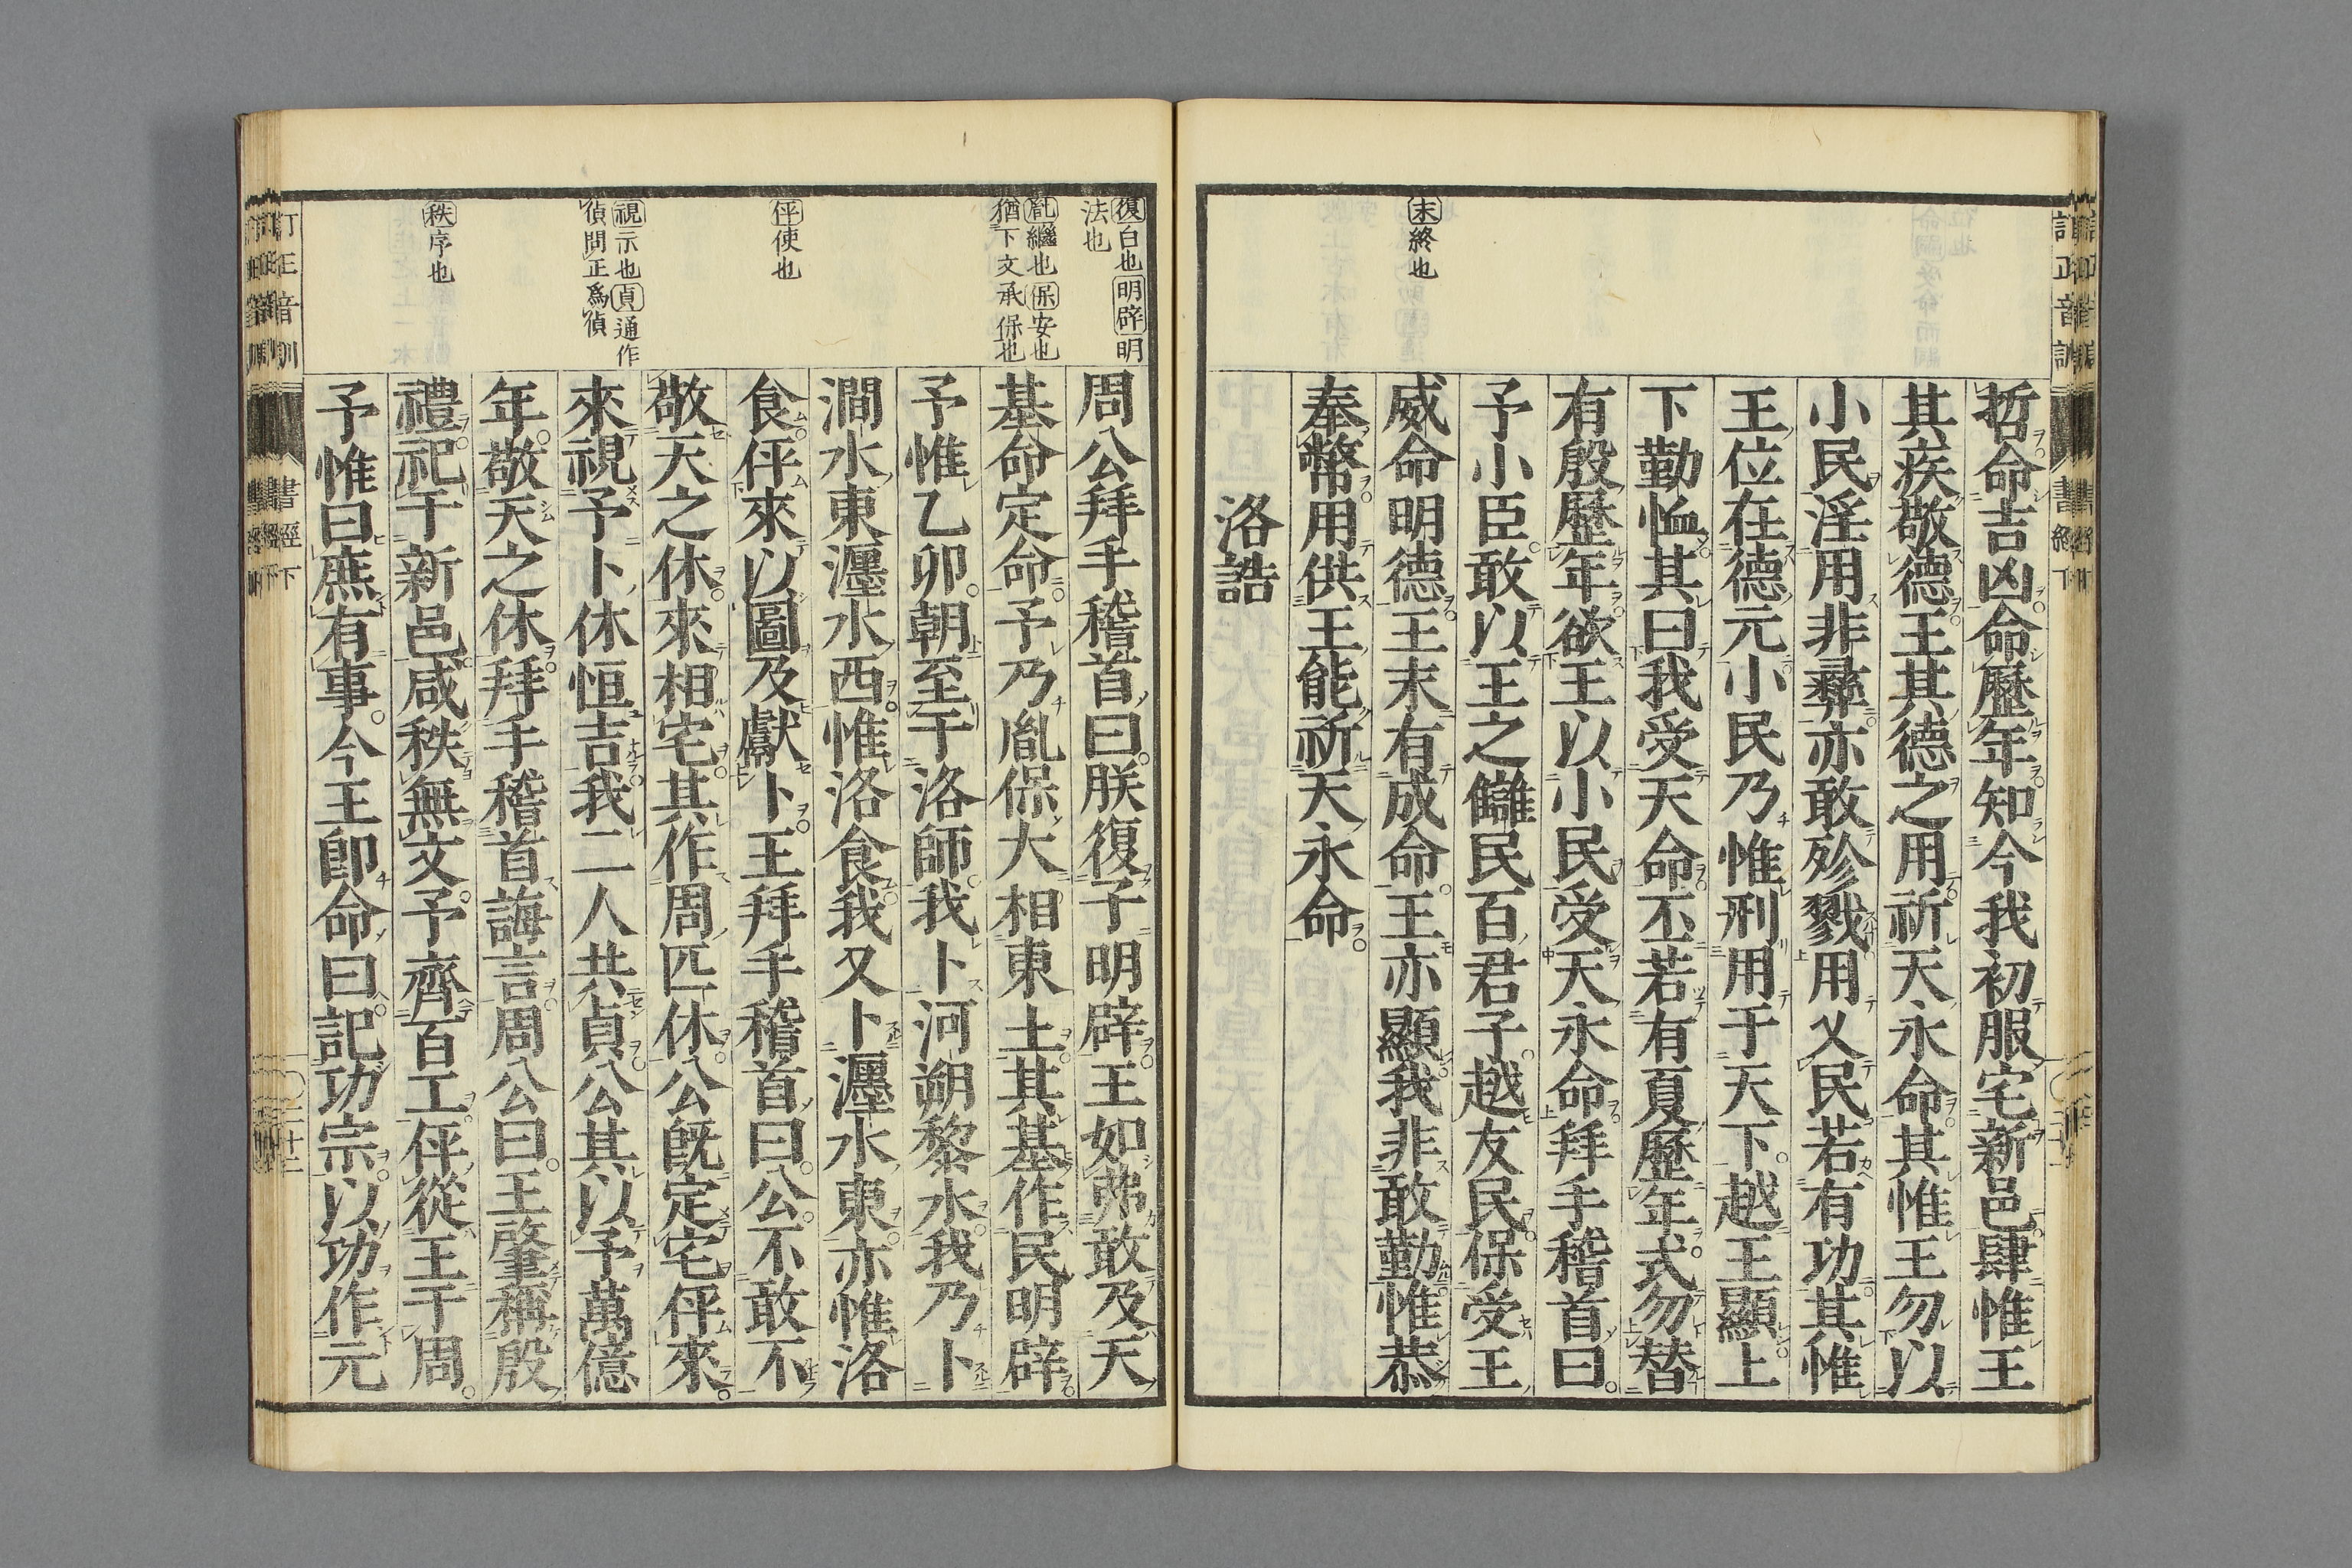 末終也
哲命吉凶命歷年知今我初服宅新邑肆惟王
其疾敬德王其德之用祈天永命其惟王勿以
小民淫用非彝亦敢殄戮用乂民若有功其惟
王位在德元小民乃惟刑用于天下越王顯上
下勤恤其曰我受天命丕若有夏歷年式勿替
有殷歷年欲王以小民受天永命拜手稽首曰
予小臣敢以王之讎民百君子越友民保受王
威命明德王末有成命王亦顯我非敢勤惟恭
奉幣用供王能祈天永命
洛誥
復白也明辟明
法也
胤繼也保安也
猶下文承保也
伻使也
視示也貞通作
偵問正爲偵
秩序也
周公拜手稽首曰朕復子明辟王如弗敢及天
基命定命予乃胤保大相東土其基作民明辟
予惟乙卯朝至于洛師我卜河朔黎水我乃卜
澗水東瀍水西惟洛食我又卜瀍水東亦惟洛
食伻來以圖及獻卜王拜手稽首曰公不敢不
敬天之休來相宅其作周匹休公既定宅伻來
來視予卜休恒吉我二人共貞公其以予萬億
年敬天之休拜手稽首誨言周公曰王肇稱殷
禮祀于新邑咸秩無文予齊百工伻從王于周
予惟曰庶有事今王卽命曰記功宗以功作元
訂正音訓
書經下